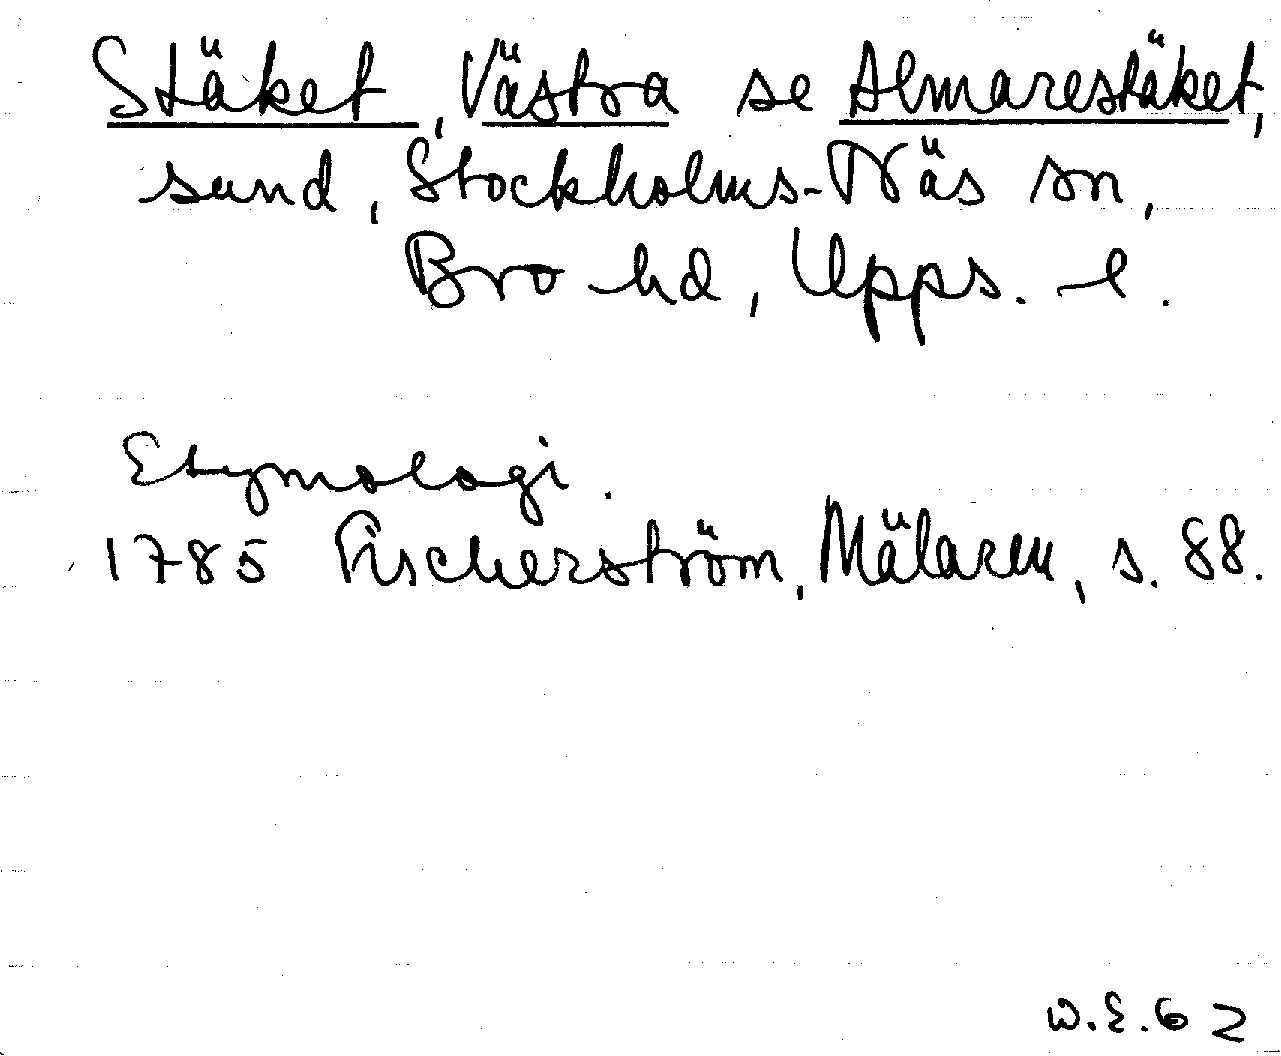 Stäket, Västra se Almarestäket,
sund, Stockholms-Näs sn,
Bro hd, Upps. l.
Etymologi.
1785 Fischerström, Mälaren, s. 88.
W.E.62